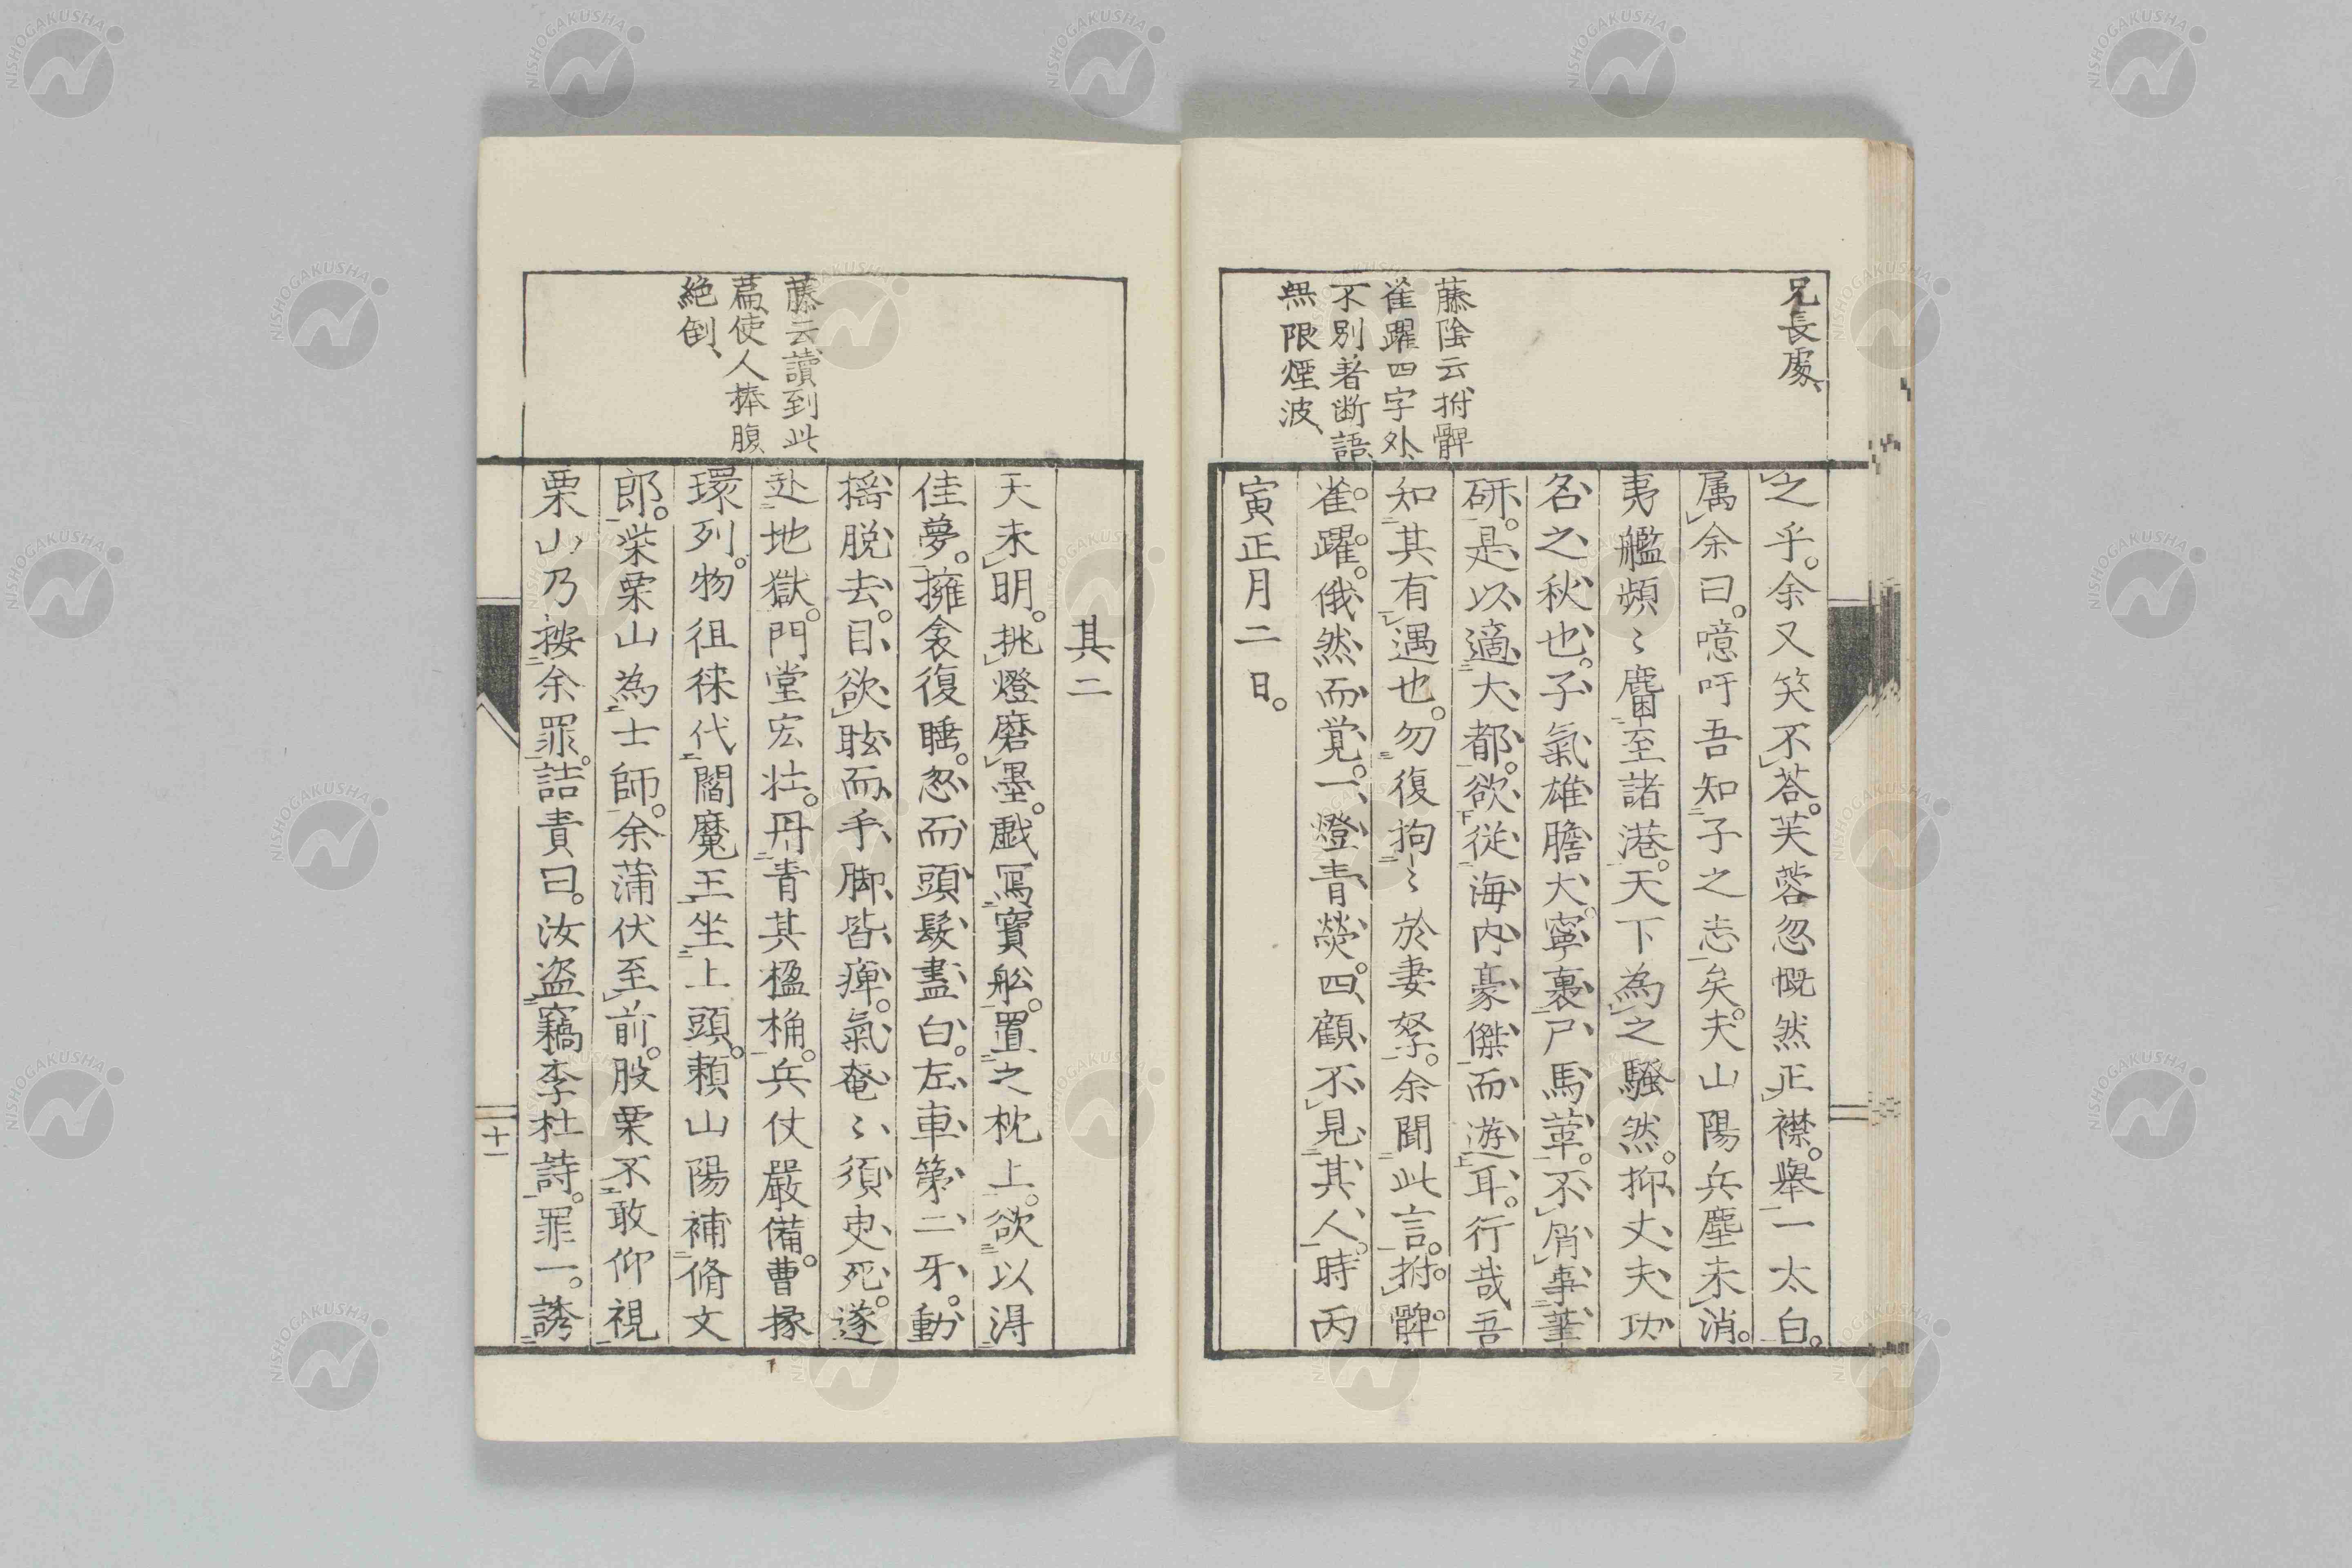 兄長處、
之乎。余又笑不荅。芙蓉忽慨然正襟。舉一太白。
属余曰。噫吁吾知子之志矣。夫山陽兵塵未消。
夷艦頻〻麕至諸港。天下為之騷然。抑丈夫功
名之秋也。子氣雄膽大。寧裹尸馬革。不屑事筆
研。是以適大都。欲從海内豪傑而遊耳。行哉吾
知其有遇也。勿復拘〻於妻孥。余聞此言。拊髀
雀躍。俄然而覚。一燈青熒。四顧不見其人。時丙
寅正月二日。
藤陰云拊髀
雀躍四字外、
不別著断語、
無限煙波、
其二
天未明。挑燈磨墨。戯寫寳舩。置之枕上。欲以淂
佳夢。擁衾復睡。忽而頭髮盡白。左車第二牙。動
揺脱去。目欲眩而手脚皆痺。氣奄〻須臾死。遂
赴地獄。門堂宏壮。丹青其楹桷。兵仗嚴備。曹掾
環列。物徂徠代閻魔王坐上頭。頼山陽補脩文
郎。柴栗山為士師。余蒲伏至前。股栗不敢仰視
栗山乃按余罪。詰責曰。汝盗竊李杜詩。罪一。誇
藤云讀到此
萹、使人捧腹
絶倒、
十一
NISHOGAKUSHA